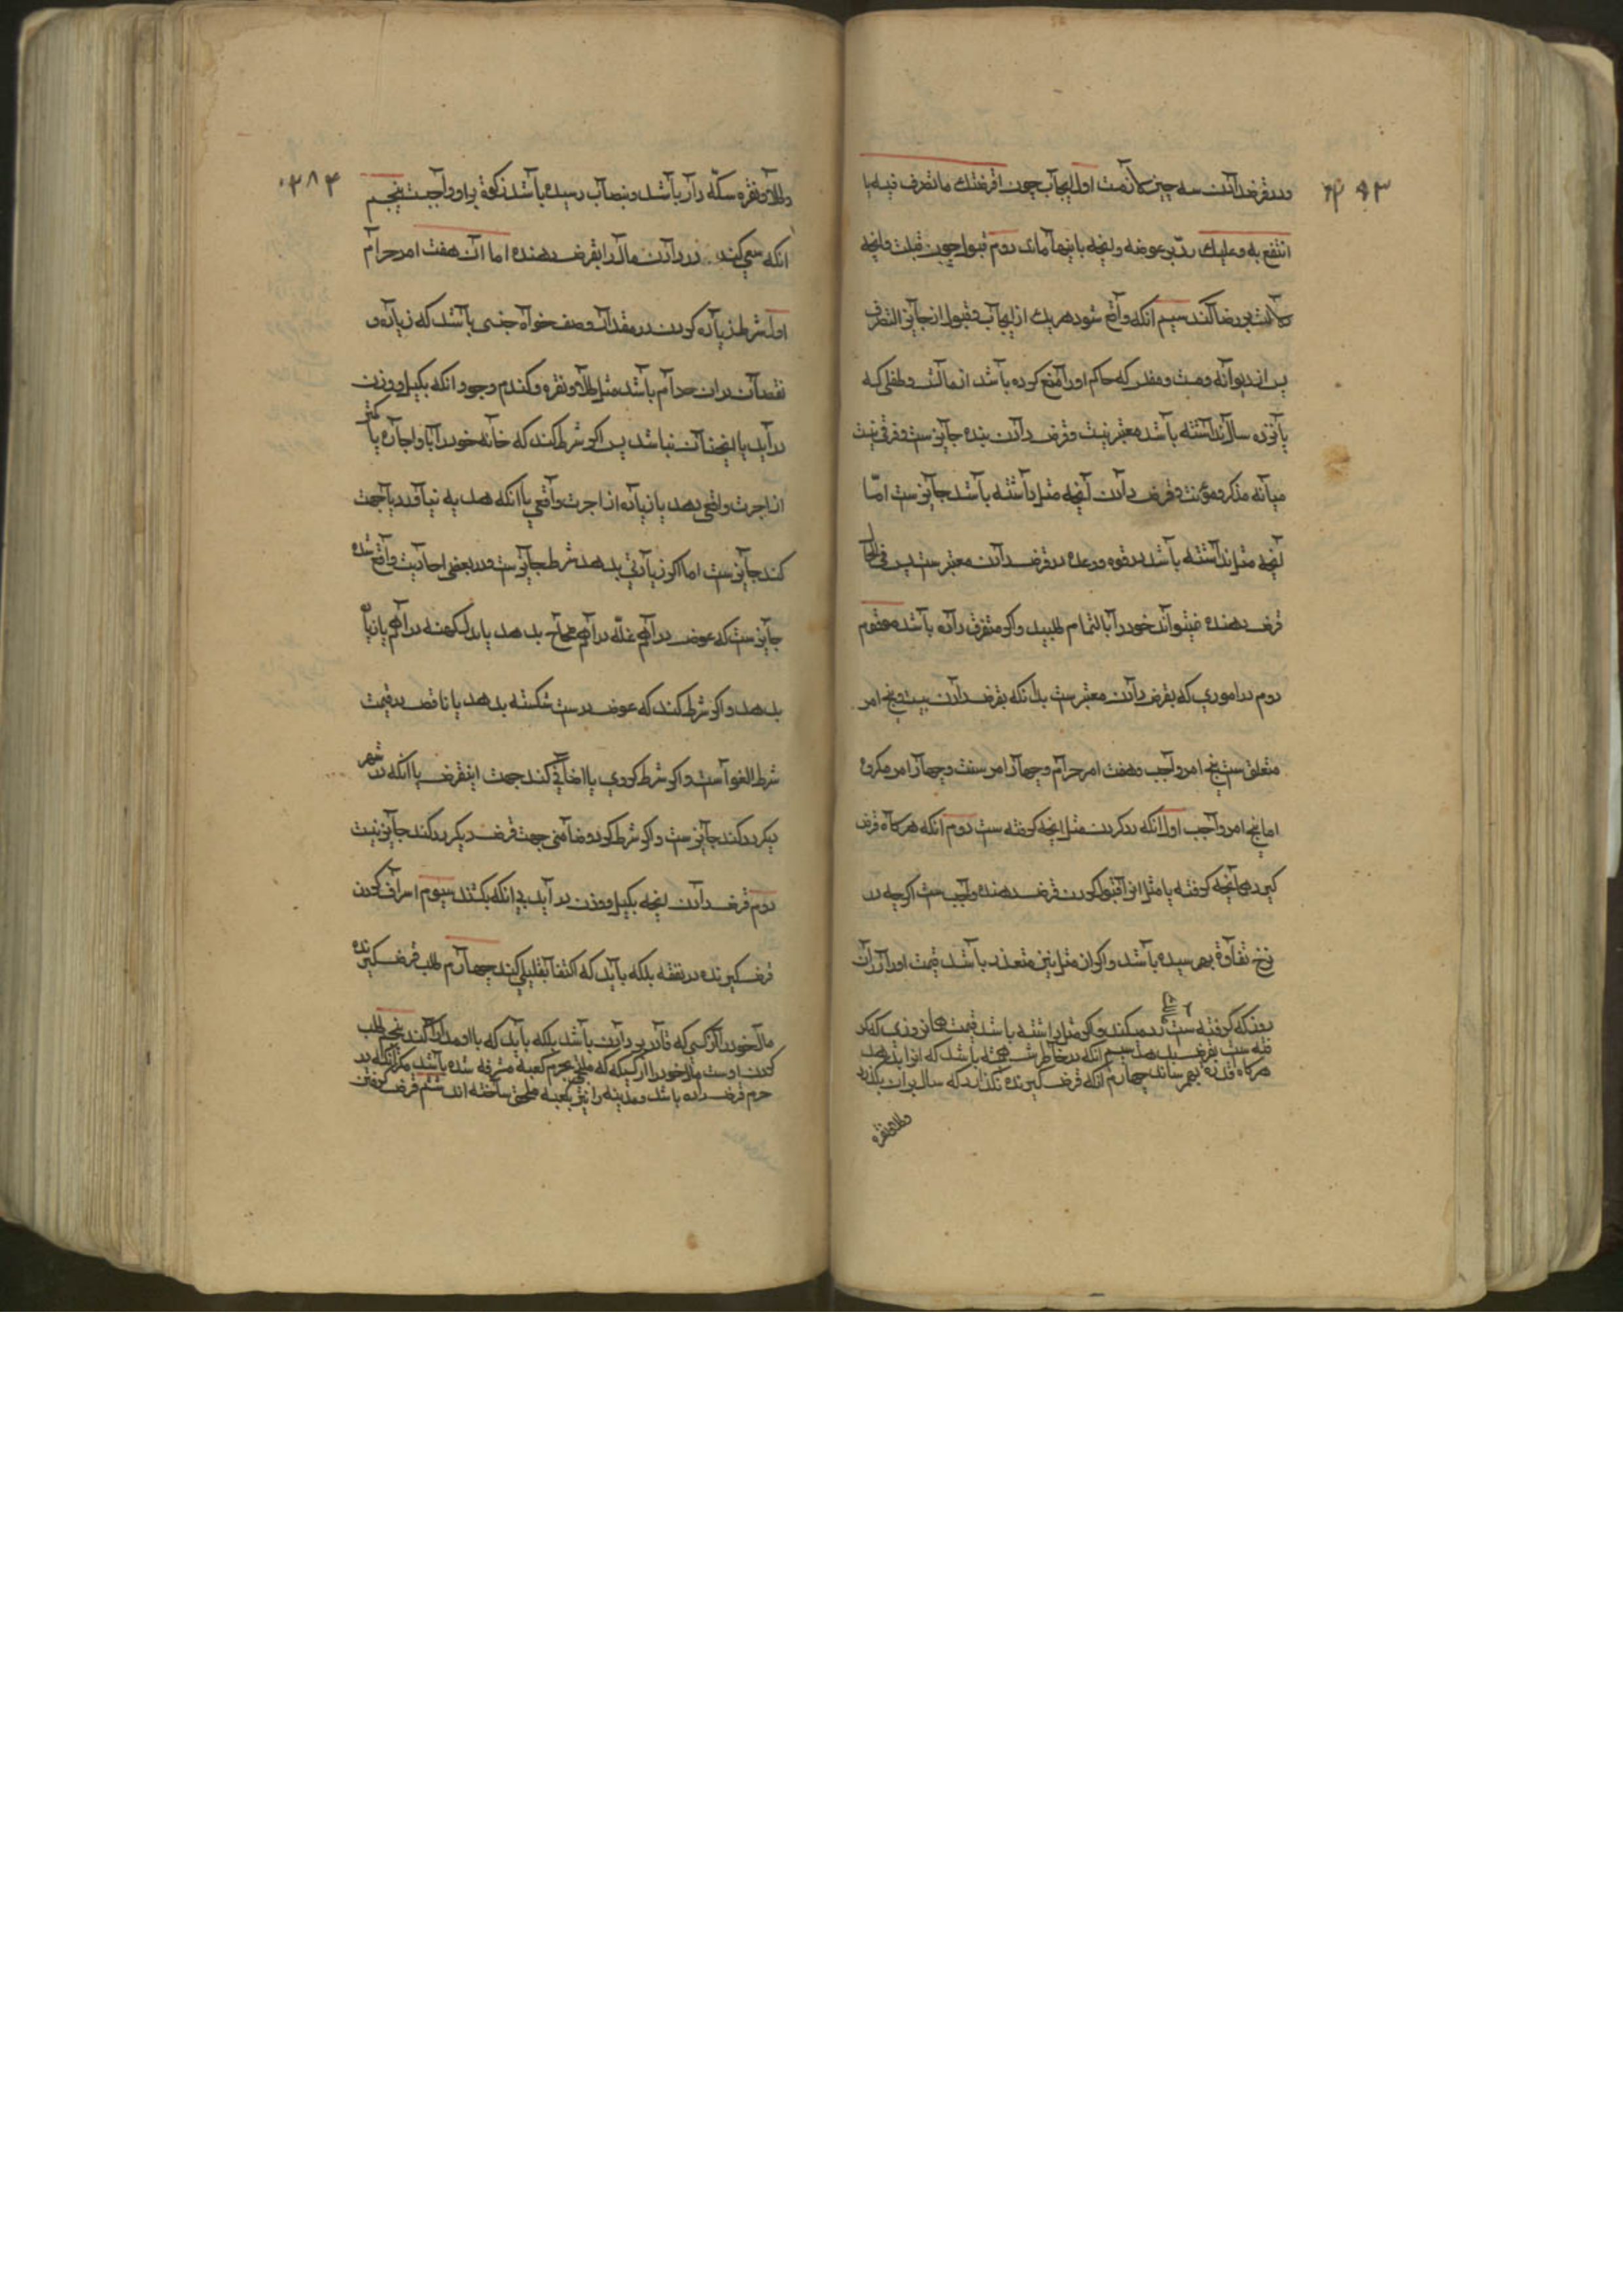 و در قرض دادن سه چیز لازمست اول ایجاب چون اقرضتك ما تصرف فیه یا
انتفع به و علیك ردّ عوضه و آنچه باینها ماند دوم قبول چون قبلت و آنچه
دلالت بر رضا کند سیم آنکه واقع شود هر یك از ایجاب و قبول از جایز التصرف
پس از دیوانه و مست و مفلس که حاکم او را منع کرده باشد از مالش و طفلی که
پانزده سال نداشته باشد معتبر نیست و قرض دادن بنده جایز ست و فرقی نیست
میانه مذکر و مؤنث و قرض دادن آنچه مثل داشته باشد جایز ست امّا
آنچه مثل نداشته باشد در قوه و وعده در قرض دادن معتبر ست پس فی الحال
قرض دهنده میتواند خود را بالتمام طلبید و اگر متفرق داده باشد مقوم
دوم در اموری که بقرض دادن معتبر ست بدانکه بقرض دادن بیست و پنج امر
متعلق ست پنج امر واجب و هفت امر حرام و چهار امر سنت و چهار امر مکروه
اما پنج امر واجب اول آنکه رد کردن مثل آنچه گرفته ست دوم آنکه هرگاه قرض
گیرنده آنچه گرفته یا مثل انرا قبول کردن قرض دهنده واجب ست اگرچه در
نرخ تفاوة بهرسیده باشد و اگر ان مثل نیز متعذر باشد قیمت او را از ان
روز که گرفته ست رد میکند و اگر مثل نداشته باشد قیمت همان روزی که گر
فته ست بقرض بدهد سیم آنکه در خاطرش باشد که انرا بدهد
هرگاه قدرة بهم رساند چهارم آنکه قرض گیرنده نگذارد که سال بران بگذرد
و طلا و نقره
۳۸۴
و طلا و نقره سکّه دار باشد و بنصاب رسیده باشد زکوة بر او واجبست پنجم
آنکه سعی کند در دادن مال را بقرض دهنده اما آن هفت امر حرام
اول شرط زیاده کردن در مقدار و صف خواه جنسی باشد که زیاده و
نقصان در ان حرام باشد مثل طلا و نقره و گندم و جو و آنکه بکیل و وزن
در آید یا اینچنان نباشد پس اگر شرط کند که خانه خود را باو اجاره یا کمتر
از اجرت واقعی بدهد یا زیاده از اجرت واقعی یا آنکه هدیه نیاورد یا جهت
کند جایز ست اما اگر زیادتی بدهد شرط جایز ست و در بعضی احادیث واقع شده
جایز ست که عوض دراهم غلّه دراهم صحاح بدهد یا بدل کهنه دراهم تازیانه
بدهد و اگر شرط کند که عوض درست شکسته بدهد یا ناقص در قیمت
شرط الغوا ست و اگر شرط گروی یا ضامنی کند جهت این قرض یا آنکه در شهر
دیگر رد کند جایز ست و اگر شرط گرو و ضامنی جهت قرض دیگر رد کند جایز نیست
دوم قرض دادن آنچه بکیل و وزن در آید بی آنکه بکشند سیوم اسراف کردن
قرض گیرنده در نفقه بلکه باید که اکتفا بقلیلی کند چهارم طلب قرض گیرنده
مال خود را از کسی که قادر بر دادن نباشد بلکه باید که با او مدارا کند پنجم طلب
کردن اوست مال خود را از کسیکه که ملتجی بحرم کعبه مشرفه شده باشد مگر آنکه در
حرم قرض داده باشد و مدینه را نیز بکعبه ملحق ساخته اند ششم قرض گرفتن